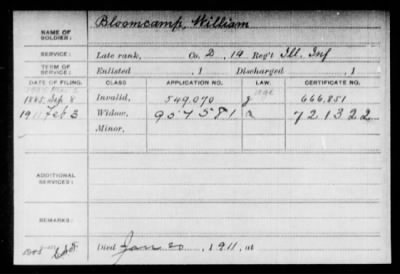 NAME OF SOLDIER: Bloomcamp, William
SERVICE: Late rank, Co. D, 19 Reg't Ill. Inf
TERM OF SERVICE: Enlisted , 1 Discharged , 1
DATE OF FILING. CLASS. APPLICATION NO. LAW. CERTIFICATE NO.
1885 Sep 8 Invalid, 549.070 g 666.851
1911 Feb 3 Widow, 957581 a 721322
Minor,
ADDITIONAL SERVICES:
REMARKS:
Died Jan 20, 1911, at